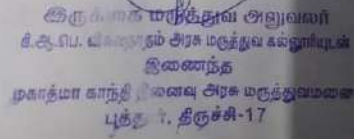 மருத்துவ அலுவலர்
கி.ஆ.பெ. விசுவநாதம் அரசு மருத்துவ கல்லூரியுடன்
இணைந்த
மகாத்மா காந்தி நினைவு அரசு மருத்துவமனை
திருச்சி-17